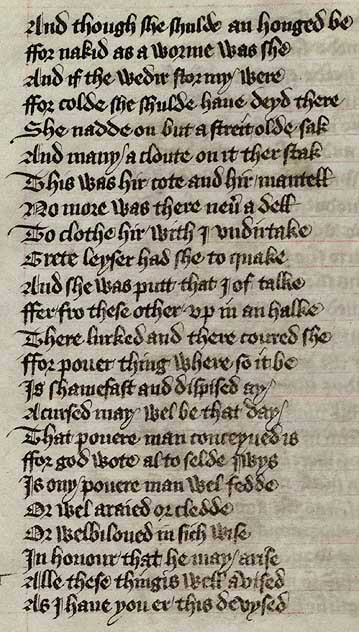 And though she shulde an honged be
ffor nakid as a worme was she
And if the wedir stormy / were
ffor colde she shulde haue deyd there
She nadde on but a streit olde sak
And many / a cloute on it ther stak
This was hir cote and hir / mantell
No more was there neư a dell
To clothe hir with I vndirtake
Grete leyser had she to quake
And she was putt that I of talke
ffer fro these other vp in an halke
There lurked and there coured she
ffor pouer thing where so it be
Is shamefast and dispised ay /
Acursed may wel be that day /
That pouere man conceyued is
ffor god wote al to selde Iwys
Is ony pouere man wel fedde
Or wel araied or cledde
Or welbiloued in sich wise
In honour that he may / arise
Alle these thingis well avised
As I haue you er this devysed